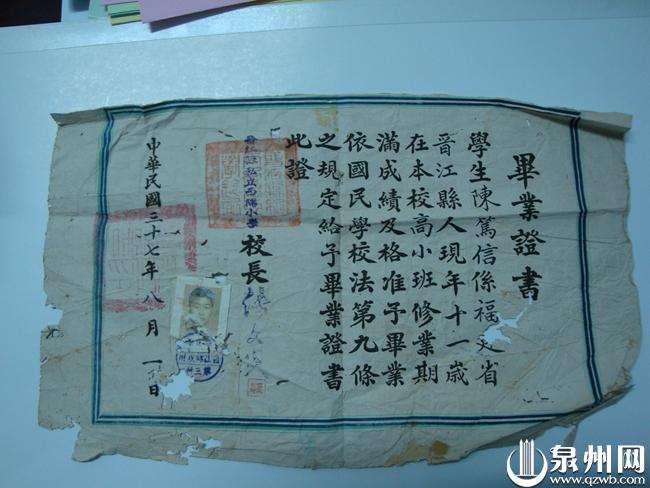 畢業證書
學生陳篤信係福建省
晉江縣人現年十一歲
在本校高小班修業期
滿成績及格准予畢業
依國民學校法第九條
之規定給予畢業證書
此證
晉江縣私立西隅小學
校長
中華民國三十七年八月一日
泉州网
www.qzwb.com